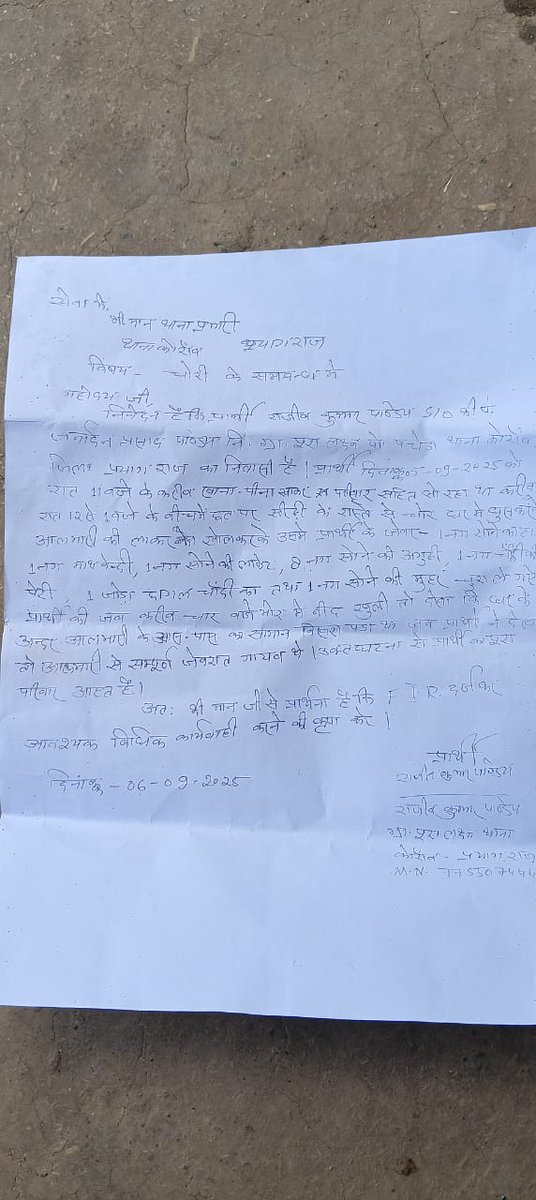 सेवा में,
श्री मान थाना प्रभारी
थाना कोराँव प्रयागराज
विषय - चोरी के सम्बन्ध में
महोदय जी,
निवेदन है कि प्रार्थी राजीव कुमार पाण्डेय S/O श्री पं.
जनार्दन प्रसाद पाण्डेय नि. ग्रा. पूरा लक्षन पो. थाना कोराँव
जिला प्रयागराज का निवासी है। प्रार्थी दिनांक -09-2025 को
रात 11 बजे के करीब खाना-पीना खाकर परिवार सहित सो रहा था करीब
रात 12 से 1 बजे के बीच में छत पर सीढ़ी के रास्ते से चोर घर में घुसकर
आलमारी की लाकर खोलकर के उसमें प्रार्थी के जेवर - 1 नग सोने का
1 नग माथबेन्दी, 1 नग सोने की लाकेट, नग सोने की अंगूठी, 1 नग चाँदी की
पेटी, 1 जोड़ा चाँदी का तथा 1 नग सोने की मुहर चुरा ले गये
प्रार्थी की जब करीब चार बजे भोर में नींद खुली तो देखा कि घर के
अन्दर आलमारी के आस-पास का सामान बिखरा पड़ा था जब प्रार्थी ने देखा
तो आलमारी से सम्पूर्ण जेवरात गायब थे। उक्त घटना से प्रार्थी का पूरा
परिवार आहत है।
अतः श्री मान जी से प्रार्थना है कि F.I.R. दर्ज कर
आवश्यक विधिक कार्यवाही करने की कृपा करें।
दिनांक - 06-09-2025
प्रार्थी
राजीव कुमार पाण्डेय
राजीव कुमार पाण्डेय
ग्रा. पूरा लक्षन थाना
कोराँव - प्रयागराज
M.N.